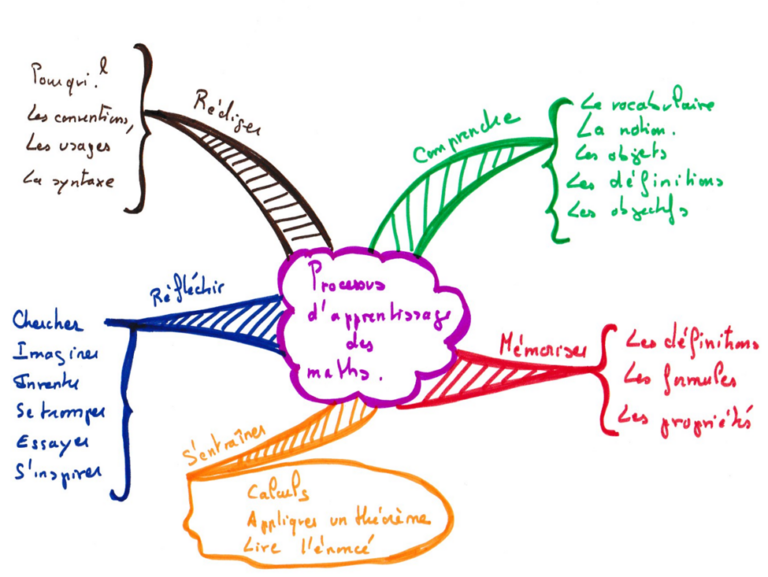 Processus
d'apprentissage
des
maths.
Comprendre
Le vocabulaire
La notion.
Les objets
Les définitions
Les objectifs
Mémoriser
Les définitions
Les formules
Les propriétés
S'entraîner
Calculs
Appliquer un théorème
Lire l'énoncé
Réfléchir
Chercher
Imaginer
Inventer
Se tromper
Essayer
S'inspirer
Rédiger
Pourqui?
Les conventions,
Les usages
La syntaxe